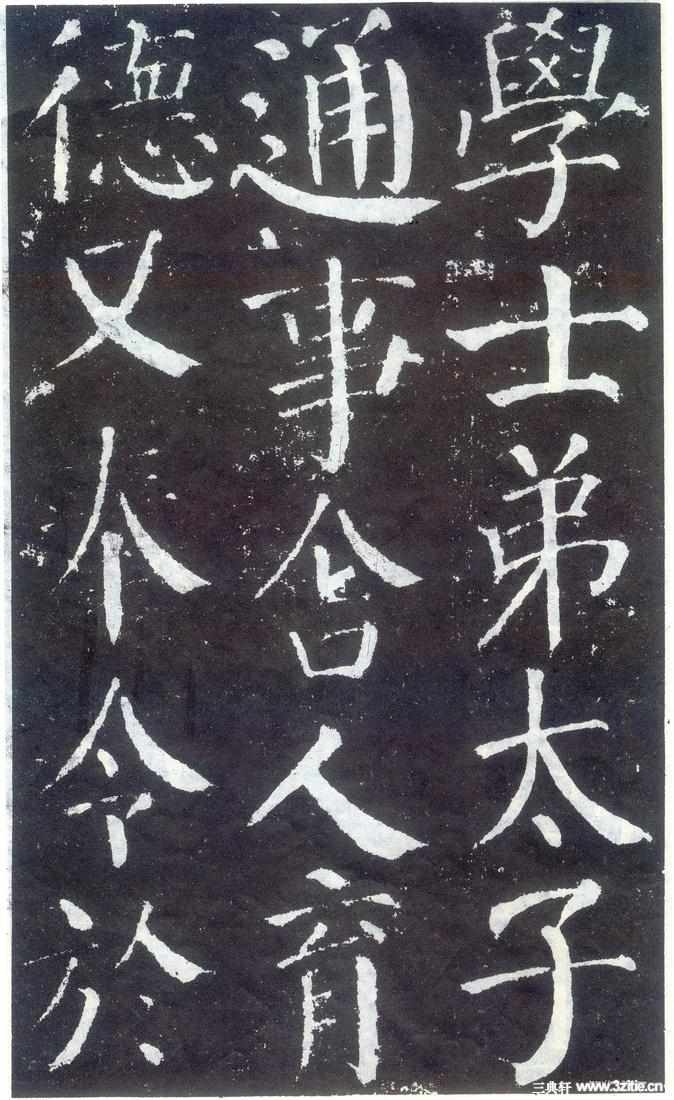 學士弟太子
通事舍人育
德又奉令於
三典轩 www.3zitie.cn